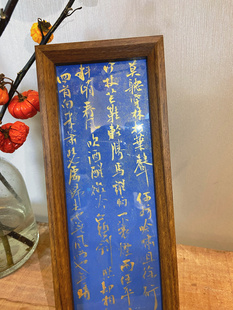 莫聽穿林打葉聲 何妨吟嘯且徐行
竹杖芒鞋輕勝馬誰怕一蓑煙雨任平生
料峭春風吹酒醒微冷山頭斜照却相迎
回首向來蕭瑟處歸去也無風雨也無晴